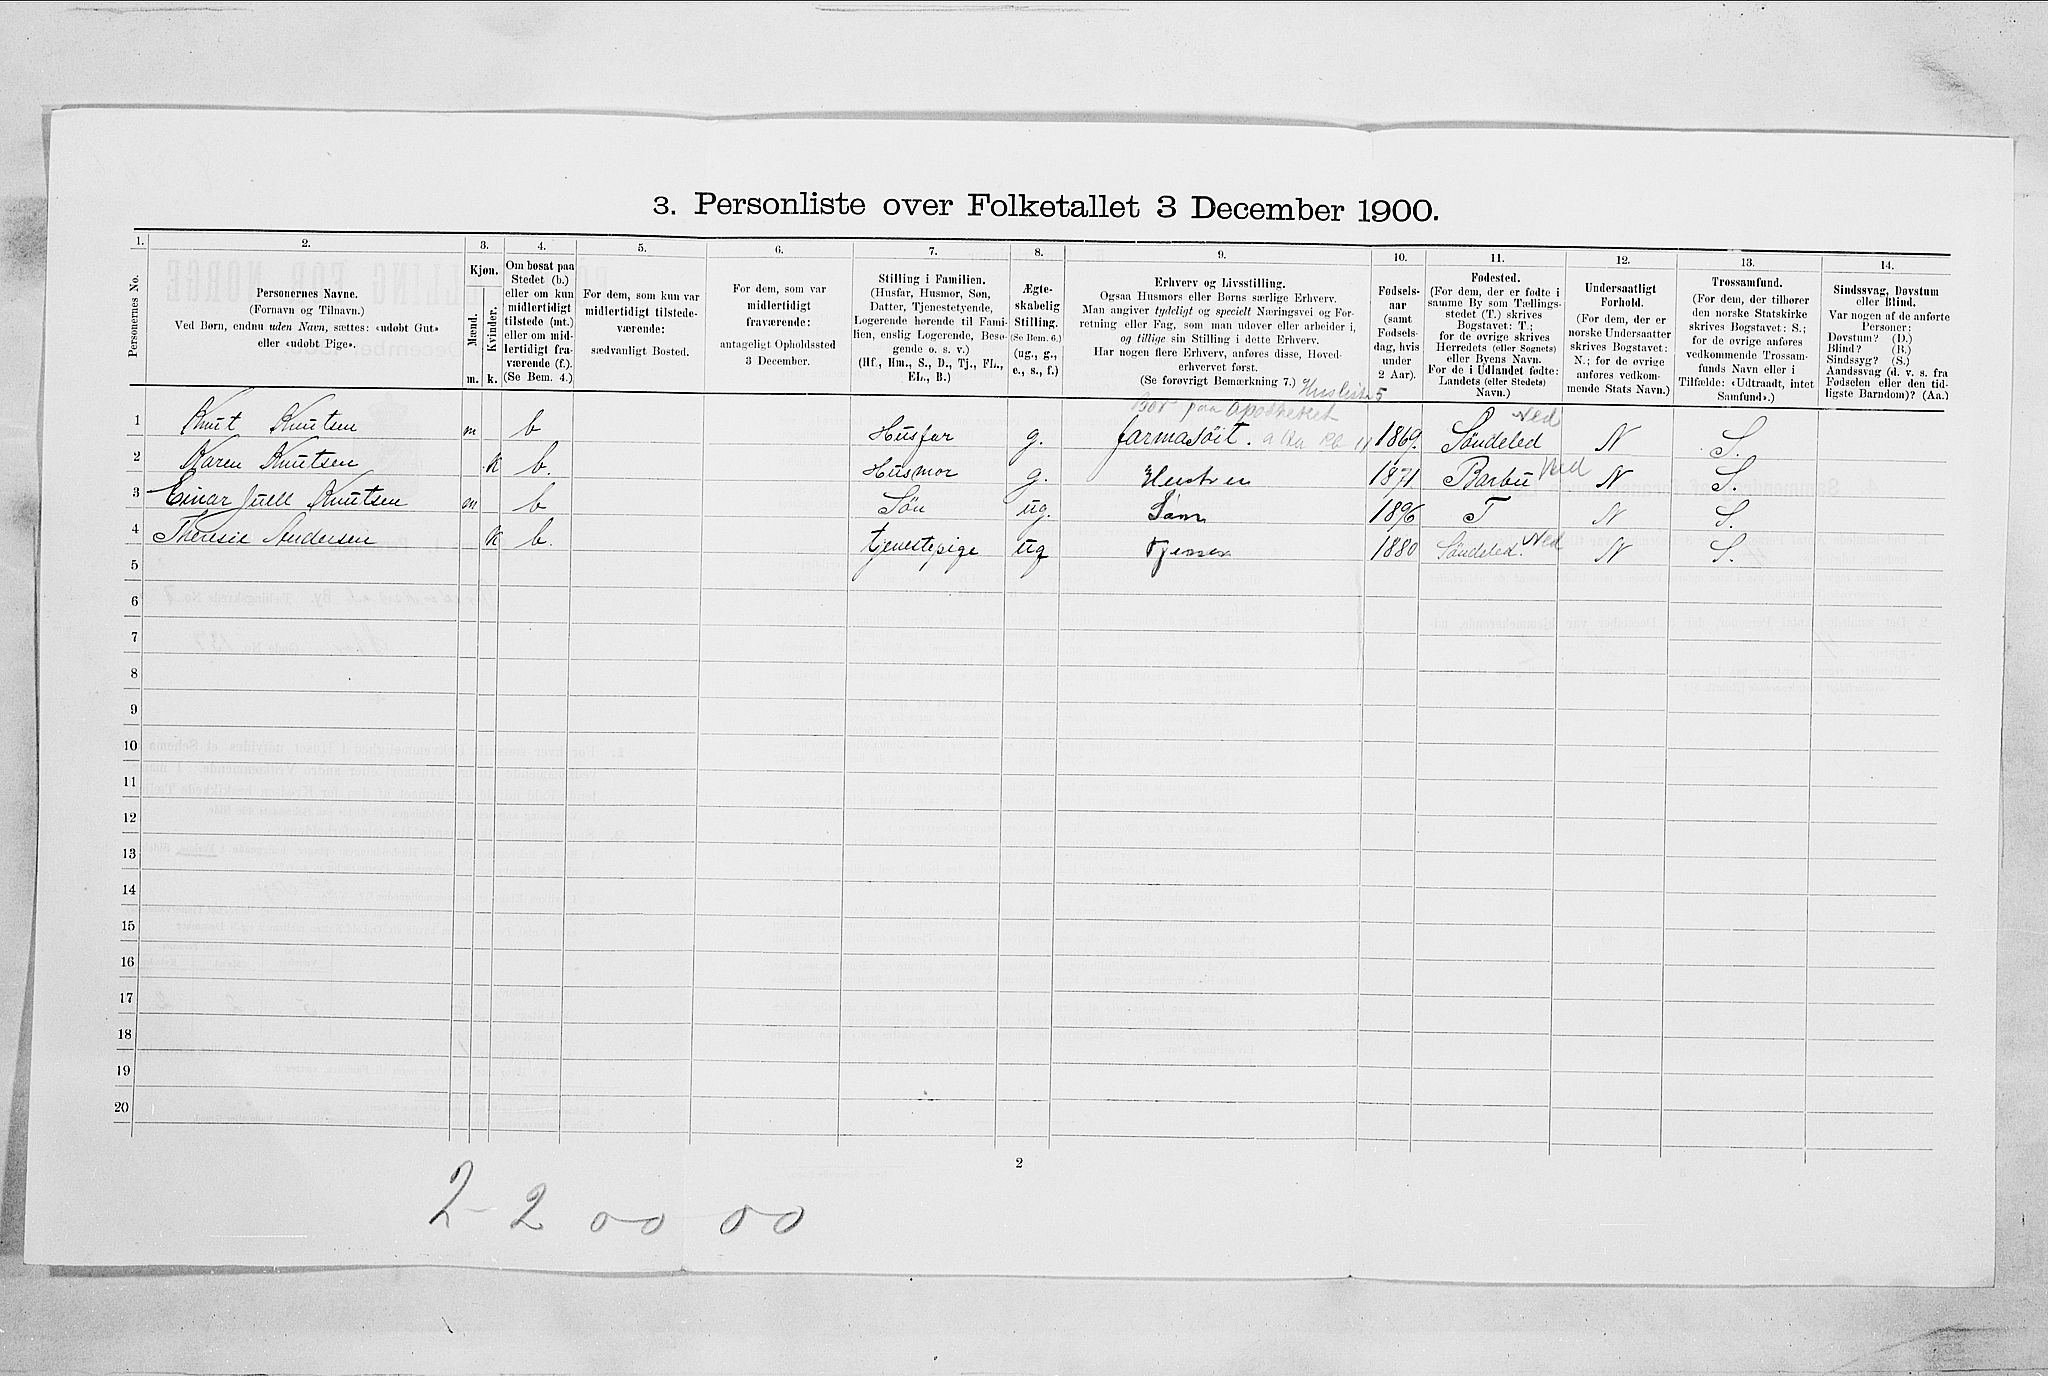 3. Personliste over Folketallet 3 December 1900.
1. 2. 3. 4. 5. 6. 7. 8. 9. 10. 11. 12. 13. 14.
Personernes No.
Personernes Navne.
(Fornavn og Tilnavn.)
Ved Børn, endnu uden Navn, sættes: «udøbt Gut»
eller «udøbt Pige».
Kjøn.
Mænd.
Kvinder.
m. k.
Om bosat paa
Stedet (b.)
eller om kun
midlertidigt
tilstede (mt.)
eller om mid-
lertidigt fra-
værende (f.).
(Se Bem. 4.)
For dem, som kun var
midlertidigt tilstede-
værende:
sædvanligt Bosted.
For dem, som var
midlertidigt
fraværende:
antageligt Opholdssted
3 December.
Stilling i Familien.
(Husfar, Husmor, Søn,
Datter, Tjenestetyende,
Logerende hørende til Fami-
lien, enslig Logerende, Besø-
gende o. s. v.)
(Hf., Hm., S., D., Tj., FL.,
EL., B.)
Ægte-
skabelig
Stilling.
(Se Bem. 6.)
(ug., g.,
e., s., f.)
Erhverv og Livsstilling.
Ogsaa Husmors eller Børns særlige Erhverv.
Man angiver tydeligt og specielt Næringsvei og For-
retning eller Fag, som man udøver eller arbeider i,
og tillige sin Stilling i dette Erhverv.
Har nogen flere Erhverv, anføres disse, Hoved-
erhvervet først.
(Se forøvrigt Bemærkning 7.) Husliste 5
Fødsels-
aar
(samt
Fødsels-
dag, hvis
under
2 Aar).
Fødested.
(For dem, der er fødte i
samme By som Tællings-
stedet (T.) skrives
Bogstavet: T.;
for de øvrige skrives
Herredets (eller Sognets)
eller Byens Navn.
For de i Udlandet fødte:
Landets (eller Stedets)
Navn.)
Undersaatligt
Forhold.
(For dem, der er
norske Undersaatter
skrives Bogstavet:
N.; for de øvrige
anføres vedkom-
mende Stats Navn.)
Trossamfund.
(For dem, der tilhører
den norske Statskirke
skrives Bogstavet: S.;
for de øvrige anføres
vedkommende Trossam-
funds Navn eller i
Tilfælde: «Udtraadt, intet
Samfund».)
Sindssvag, Døvstum
eller Blind.
Var nogen af de anførte
Personer:
Døvstum? (D.)
Blind? (B.)
Sindssyg? (S.)
Aandssvag (d. v. s. fra
Fødselen eller den tid-
ligste Barndom)? (Aa.)
Bor paa Apotheket
1 Knut Knutsen m b Husfar g. farmasøit. 1869. Söndeled Ned N S.
2 Karen Knutsen k b. Husmor g. Hustru 1871 Barbu Ned N S.
3 Einar Juell Knutsen m b Søn ug. Søn 1896 T N S.
4 Theresie Andersen k b. tjenestepige ug 1880 Söndeled. Ned N S.
5
6
7
8
9
10
11
12
13
14
15
16
17
18
19
20
2
2-2 00 00